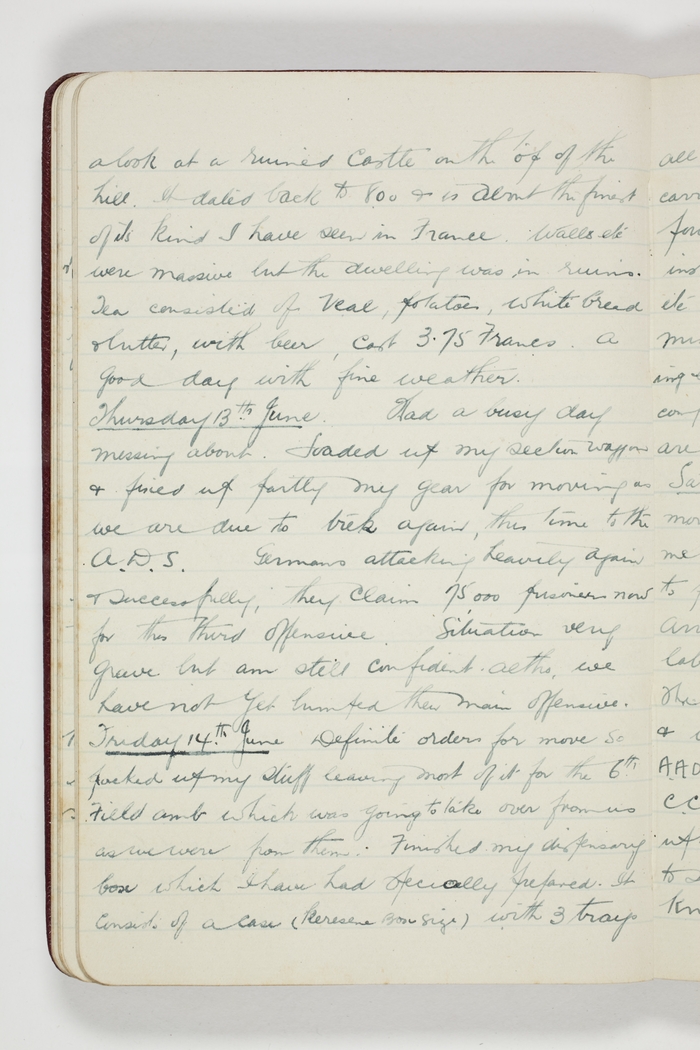 a look at a ruined Castle on the top of the
hill. It dated back to 800 & is about the finest
of its kind I have seen in France. Walls etc
were massive but the dwelling was in ruins.
Tea consisted of Veal, potatoes, white bread
& butter, with beer, cost 3.75 Francs. A
good day with fine weather.
Thursday 13th June. Had a busy day
messing about. Loaded up my section waggon
& fixed up partly my gear for moving as
we are due to trek again, this time to the
A.D.S. Germans attacking heavily again
& successfully, they claim 75000 prisoners now
for this third offensive. Situation very
grave but am still confident altho, we
have not yet bumped their main offensive.
Friday 14th June Definite orders for move so
packed up my stuff leaving most of it for the 6th
Field amb which was going to take over from us
as we were from them. Finished my dispensary
box which I have had specially prepared. It
consists of a case (Kerosene Box Size) with 3 trays
all
etc
are
me
to
&
AAD
CC
up
to